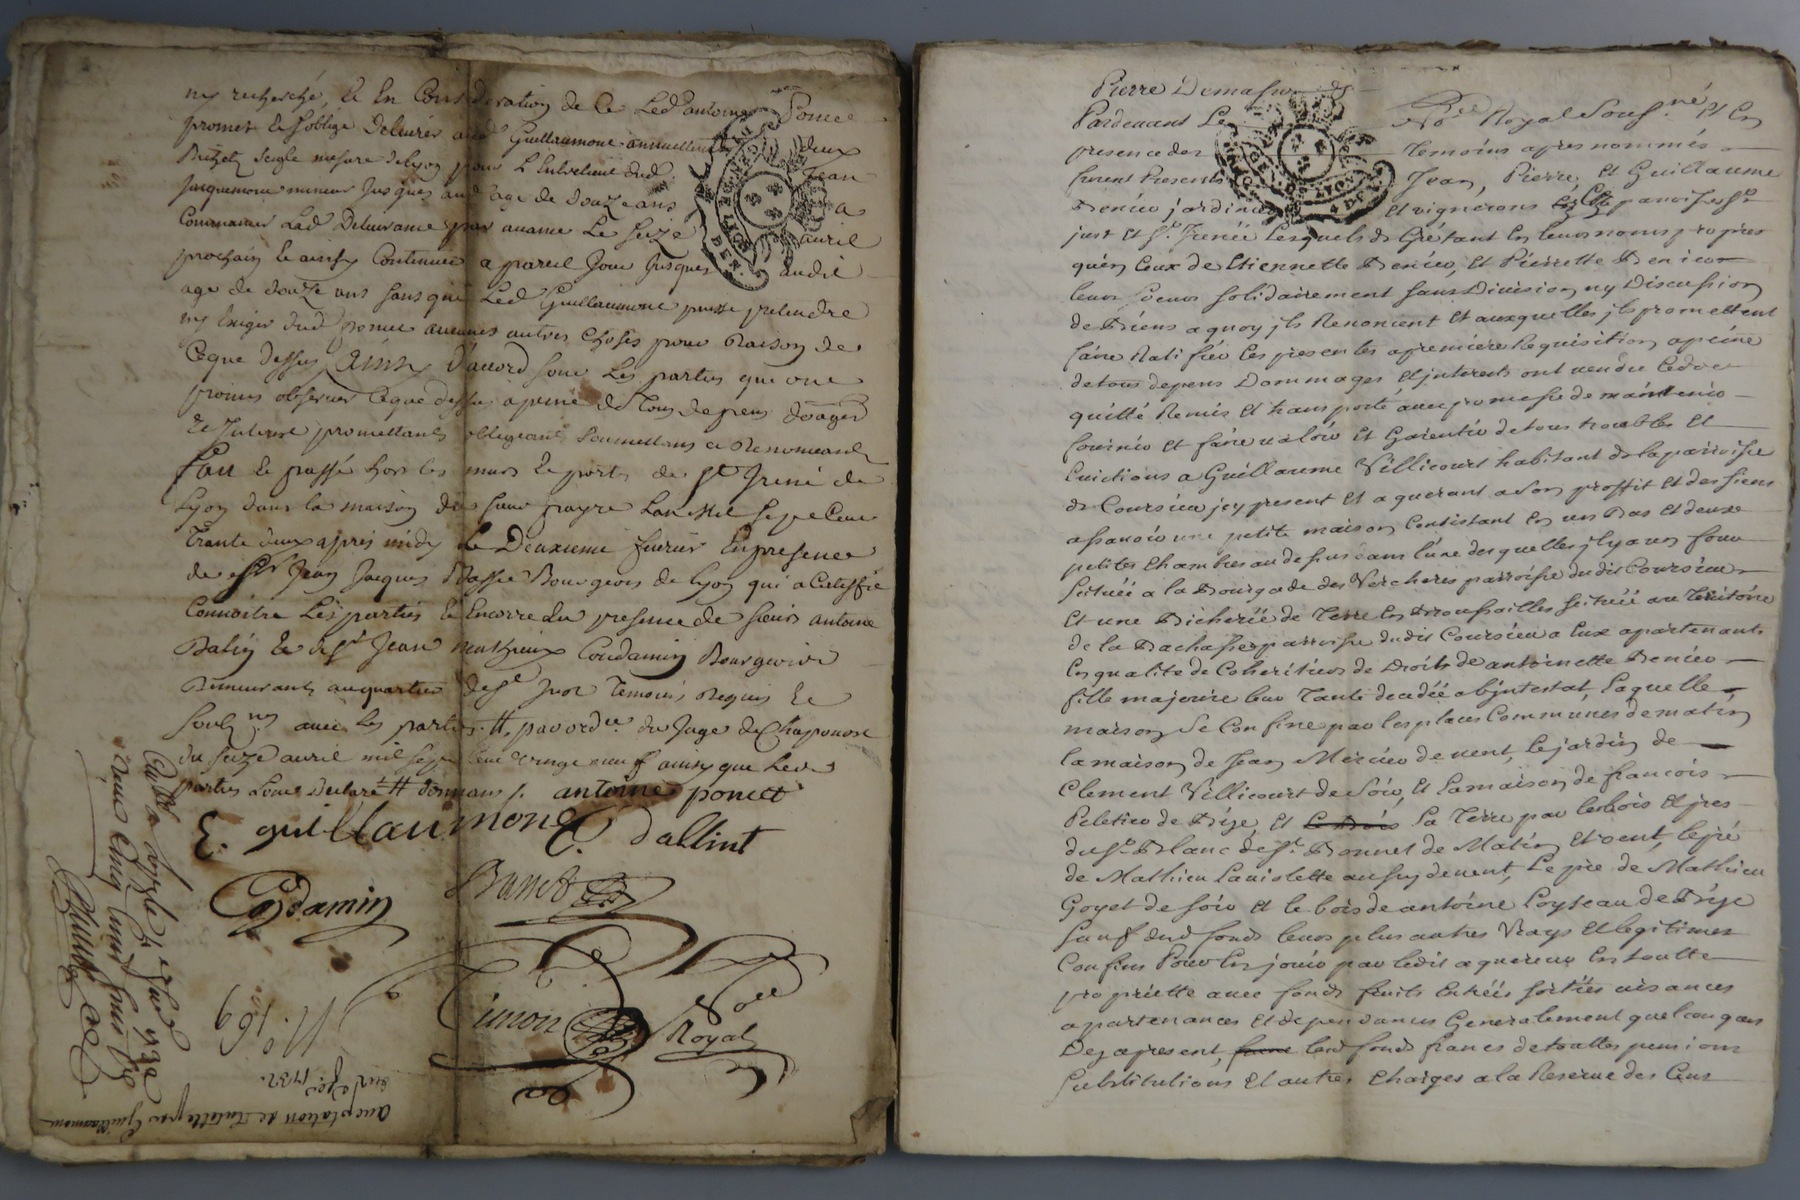 ny recherché, Et En Consideration de Ce Led antoine Ponce
promet et soblige Delivrer aud Guillaumone annuellement deux
Bichets seigle mesure de Lyon pour L Entretient dud. Jean
Jacquemone mineur Jusques aud age de douze ans a
Commancer Lad Delivrance par avance Le seize avril
prochain et ainsy Continuer a pareil Jour Jusques audit
age de douze ans sans que Led Guillaumone puisse pretendre
ny Exiger dud poncet aucunes autres Choses pour Raison de
Ceque dessus Ainsy D'accord sont Les parties que ont
promis observer Ceque dessus a peine de Tous depens
et Interest promettants obligeants soumettans et Renonceants
fait et passé hors les murs et porte de St Irené de
Lyon dans la maison du sieur frayre Lan Mil sept Cent
Trante deux apres midy Le Deuxieme fevrier En presence
de Sr Jean Jacques Basse Bourgeois de Lyon qui a Certiffié
Connoitre Les parties et Encorre En presence de sieurs antoine
Balin et de Sr Jean Mathieux Condamin Bourgeois
Demeurants au quartier de St Just Temoins Requis et
soub.nés avec les parties. # par ord.ce du Juge de Chaponost
du seize avril mil sept Cent vingt neuf ainsy que Les
parties L'ont Declaré # donnans /. antoine poncet
E. guillaumone C. dallint
Condamin Banet
Simon Nore
Royal
N.o 169
acceptation de Tutelle par Guillaumone
du 2e fer 1732.
Pierre Demasur
Pardevant Le No.re Royal Sous.né, Et En
presence des Temoins apres nommés
furent Presents Jean, Pierre, Et Guillaume
Deniéu jardiniers Et vignerons de la paroisse St
just Et St Irenée Lesquels de Gré tant En leurs noms propres
qu'en Ceux de Etiennette Deniéu, Et Pierrette Deniéu
leurs soeurs solidairement sans Division ny Discussion
de Biens a quoy ils Renoncent Et auxquelles ils promettent
faire Ratifiér Les presentes a premiere Requisition a peine
de tous depens Dommages Et interets ont vendu Cedé
quitté Remis Et transporté avec promesse de maintenir
fournir Et faire valoir Et Garentir de tous troubles Et
Evictions a Guillaume Villicourt habitant de la parroisse
de Coursieu jcy present Et aquerant a son proffit Et des siens
asavoir une petite maison Consistant En un Bas Et deux
petites Chambres au dessus dans l'une desquelles il y a un four
scituée a la Bourgade des Vercheres parroisse dudit Coursieu
Et une Bicherée de Terre En Broussailles scituée au Teritoire
de la Rachasse parroisse dudit Coursieu a Eux apartenants
En qualité de Coheritiers de Droits de antoinette Deniéu
fille majeure leur Tante decedée abjntestat, Laquelle
maison se Confine par les places Communes de matin
la maison de Jean Merciér de vent, le jardin de
Clement Villicourt de soir, Et la maison de francois
Peletier de Bize, Et le Bois La Terre par les bois Et prés
du Sr Blanc de St Bonnet de Matin Et vent, le pré
de Mathieu Laviolette aussy de vent, Le pré de Mathieu
Goyet de soir Et le bois de antoine Loyseau de Bize
sauf dud fonds leurs plus autres Vrays Et legitimes
Confins Pour En jouir par ledit aquereur En toutte
propriette avec fonds fruits Entrées sorties aisances
apartenances Et dependances Generalement quelconques
Dez apresent, faire lesd fonds francs de touttes pensions
substitutions Et autres Charges a la Reserve des Cens